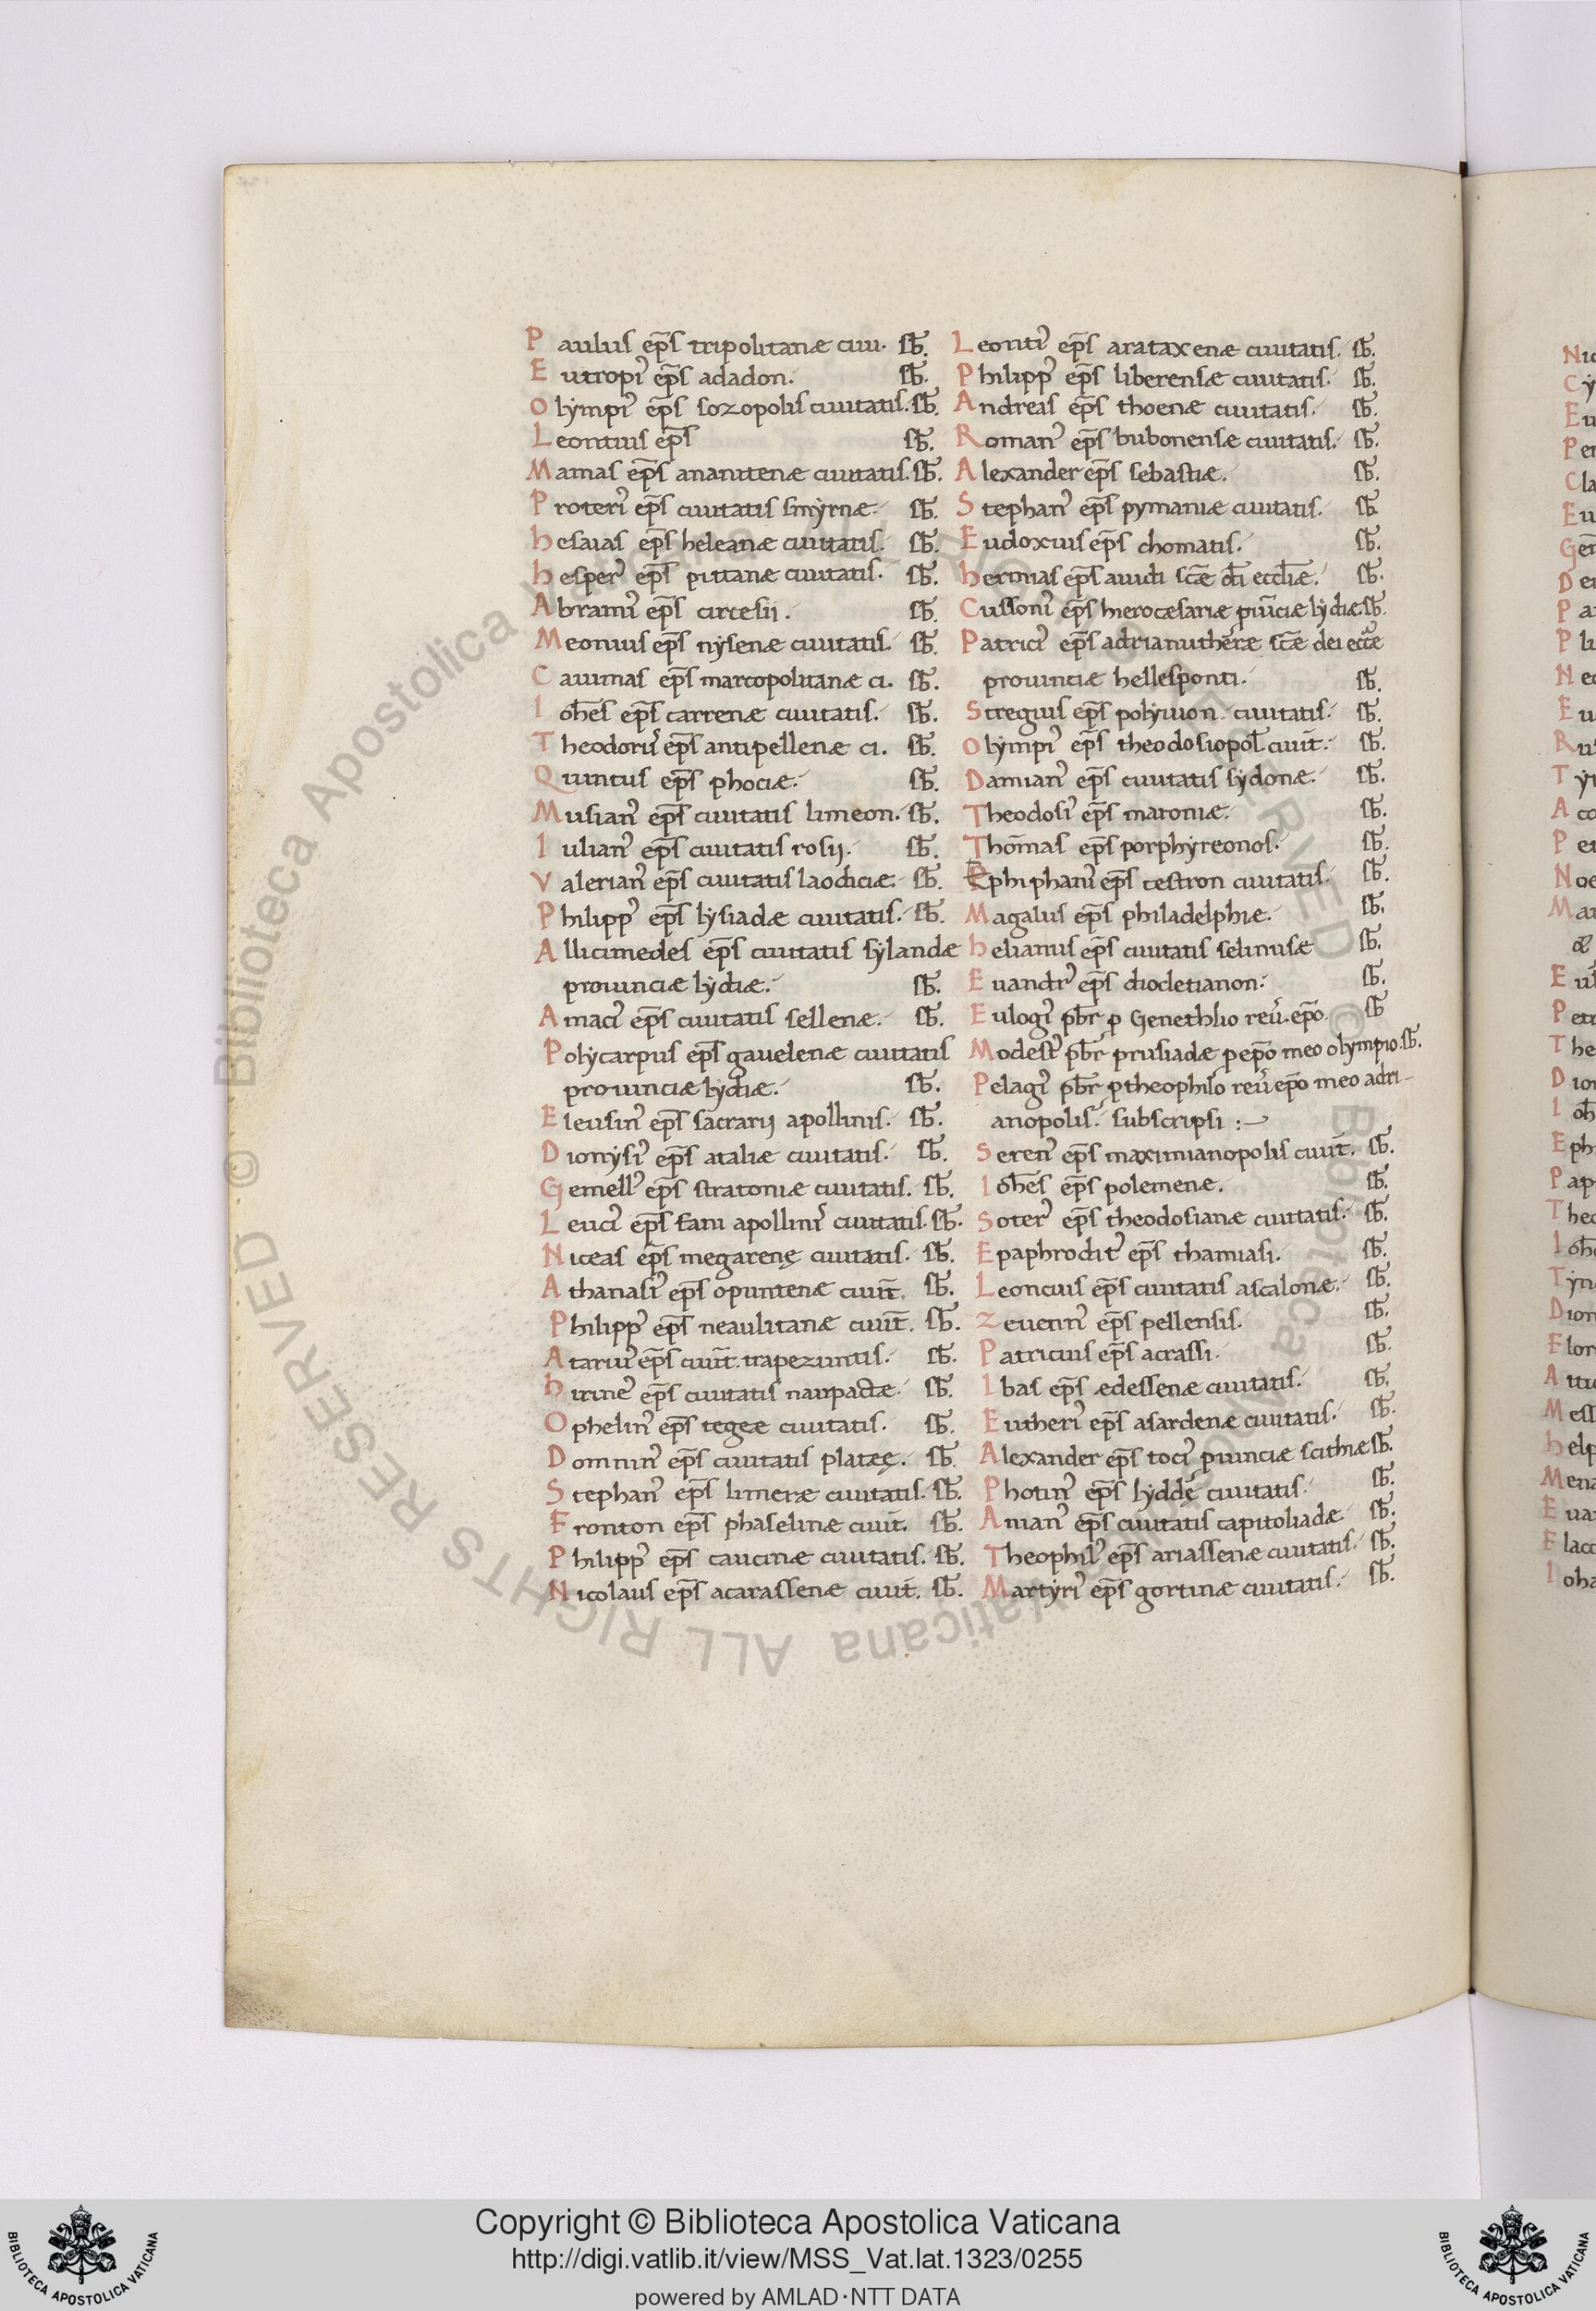 Paulus ep̄s tripolitanæ ciui. sƀ.
Eutropiꝰ ep̄s adadon. sƀ.
Olympiꝰ ep̄s sozopolis ciuitatis. sƀ.
Leontius ep̄s sƀ.
Mamas ep̄s ananitenæ ciuitatis. sƀ.
Proteriꝰ ep̄s ciuitatis smyrnæ. sƀ.
hesaias ep̄s heleanæ ciuitatis. sƀ.
hesperꝰ ep̄s pittanæ ciuitatis. sƀ.
Abramiꝰ ep̄s circesii. sƀ.
Meonius ep̄s nysenæ ciuitatis. sƀ.
Cauimas ep̄s marcopolitanæ ci. sƀ.
Ioh̄es ep̄s carrenæ ciuitatis. sƀ.
Theodorꝰ ep̄s antipellenæ ci. sƀ.
Quintus ep̄s phociæ. sƀ.
Musianꝰ ep̄s ciuitatis limeon. sƀ.
Iulianꝰ ep̄s ciuitatis rosij. sƀ.
Valerianꝰ ep̄s ciuitatis laodiciæ. sƀ.
Philippꝰ ep̄s lysiadæ ciuitatis. sƀ.
Allicimedes ep̄s ciuitatis sylandæ
prouinciæ lydiæ. sƀ.
Amaciꝰ ep̄s ciuitatis sellenæ. sƀ.
Polycarpus ep̄s gauelenæ ciuitatis
prouinciæ lydiæ. sƀ.
Eleusinꝰ ep̄s sacrarij apollinis. sƀ.
Dionysiꝰ ep̄s ataliæ ciuitatis. sƀ.
Gemellꝰ ep̄s stratoniæ ciuitatis. sƀ.
Leuciꝰ ep̄s fani apollinꝭ ciuitatis. sƀ.
Niceas ep̄s megarenę ciuitatis. sƀ.
Athanasiꝰ ep̄s opuntenæ ciuit̄. sƀ.
Philippꝰ ep̄s neaulitanæ ciuit̄. sƀ.
Atariuꝰ ep̄s ciuit̄. trapezuntis. sƀ.
hirineꝰ ep̄s ciuitatis naupactæ. sƀ.
Ophelinꝰ ep̄s tegeæ ciuitatis. sƀ.
Domninꝰ ep̄s ciuitatis plateę. sƀ.
Stephanꝰ ep̄s limeræ ciuitatis. sƀ.
Fronton ep̄s phaselinæ ciuit̄. sƀ.
Philippꝰ ep̄s caucinæ ciuitatis. sƀ.
Nicolaus ep̄s acarassenæ ciuit̄. sƀ.
Leontiꝰ ep̄s arataxenæ ciuitatis. sƀ.
Philippꝰ ep̄s liberensæ ciuitatis. sƀ.
Andreas ep̄s thoenæ ciuitatis. sƀ.
Romanꝰ ep̄s bubonensæ ciuitatis. sƀ.
Alexander ep̄s sebastiæ. sƀ.
Stephanꝰ ep̄s pymaniæ ciuitatis. sƀ
Eudoxius ep̄s chomatis. sƀ.
hermias ep̄s auidi sc̄æ d̄i eccl̄iæ. sƀ.
Cussoniꝰ ep̄s hierocæsariæ ꝓuīciæ lydiæ. sƀ.
Patriciꝰ ep̄s adrianutheræ sc̄æ dei ecc̄æ
prouinciæ hellesponti. sƀ.
Stregius ep̄s polyuion ciuitatis. sƀ.
Olympiꝰ ep̄s theodosiopol̄ ciuit̄. sƀ.
Damianꝰ ep̄s ciuitatis sydonæ. sƀ.
Theodosiꝰ ep̄s maroniæ. sƀ.
Thomas ep̄s porphyreonos. sƀ.
Ephiphaniꝰ ep̄s cestron ciuitatis. sƀ.
Magalus ep̄s philadelphiæ. sƀ.
helianus ep̄s ciuitatis selinusæ sƀ.
Euandrꝰ ep̄s diocletianon. sƀ.
Eulogiꝰ pƀr ꝓ Genethlio reu̅. ep̄o. sƀ
Modestꝰ pƀr prusiadæ ꝑ ep̄o meo olympio. sƀ.
Pelagiꝰ pƀr ꝑ theophilo reu̅ ep̄o meo adri-
anopolis. subscripsi :-
Serenꝰ ep̄s maximianopolis ciuit̄. sƀ.
Ioh̄es ep̄s polemenæ. sƀ.
Soterꝰ ep̄s theodosianæ ciuitatis. sƀ.
Epaphroditꝰ ep̄s thamiasi. sƀ.
Leoncius ep̄s ciuitatis ascalonæ. sƀ.
Zeuennꝰ ep̄s pellensis. sƀ.
Patricius ep̄s acrassi. sƀ.
Ibas ep̄s ædessenæ ciuitatis. sƀ.
Eutheriꝰ ep̄s asardenæ ciuitatis. sƀ.
Alexander ep̄s tociꝰ ꝓuinciæ scithiæ sƀ.
Photinꝰ ep̄s lyddę ciuitatis. sƀ.
Amanꝰ ep̄s ciuitatis capitoliadæ sƀ.
Theophilꝰ ep̄s ariassenæ ciuitatis. sƀ.
Martyriꝰ ep̄s gortinæ ciuitatis. sƀ.
Copyright © Biblioteca Apostolica Vaticana
http://digi.vatlib.it/view/MSS_Vat.lat.1323/0255
powered by AMLAD·NTT DATA
BIBLIOTECA APOSTOLICA VATICANA
BIBLIOTECA APOSTOLICA VATICANA
© Biblioteca Apostolica Vaticana ALL RIGHTS RESERVED